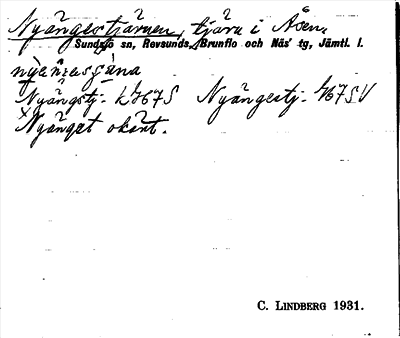 Nyängestjärnen, tjärn i Åsen,
Sundsjö sn, Revsunds, Brunflo och Näs' tg, Jämtl. l.
Nyängstj. Nyängestj.
Nyänget okänt.
C. LINDBERG 1931.